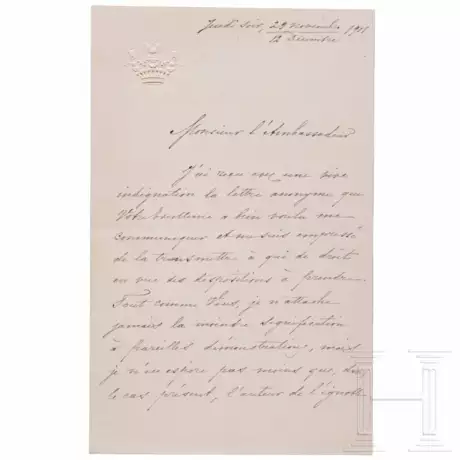 Jeudi soir, 29 Novembre 1911
12 Décembre
Monsieur l'Ambassadeur
J'ai reçu avec une vive
indignation la lettre anonyme que
Votre Excellence a bien voulu me
communiquer et me suis empressé
de la transmettre à qui de droit
en vue des dispositions à prendre.
Tout comme Vous, je n'attache
jamais la moindre signification
à pareilles démonstration, mais
je n'en espère pas moins que, dans
le cas présent, l'auteur de l'ignoble